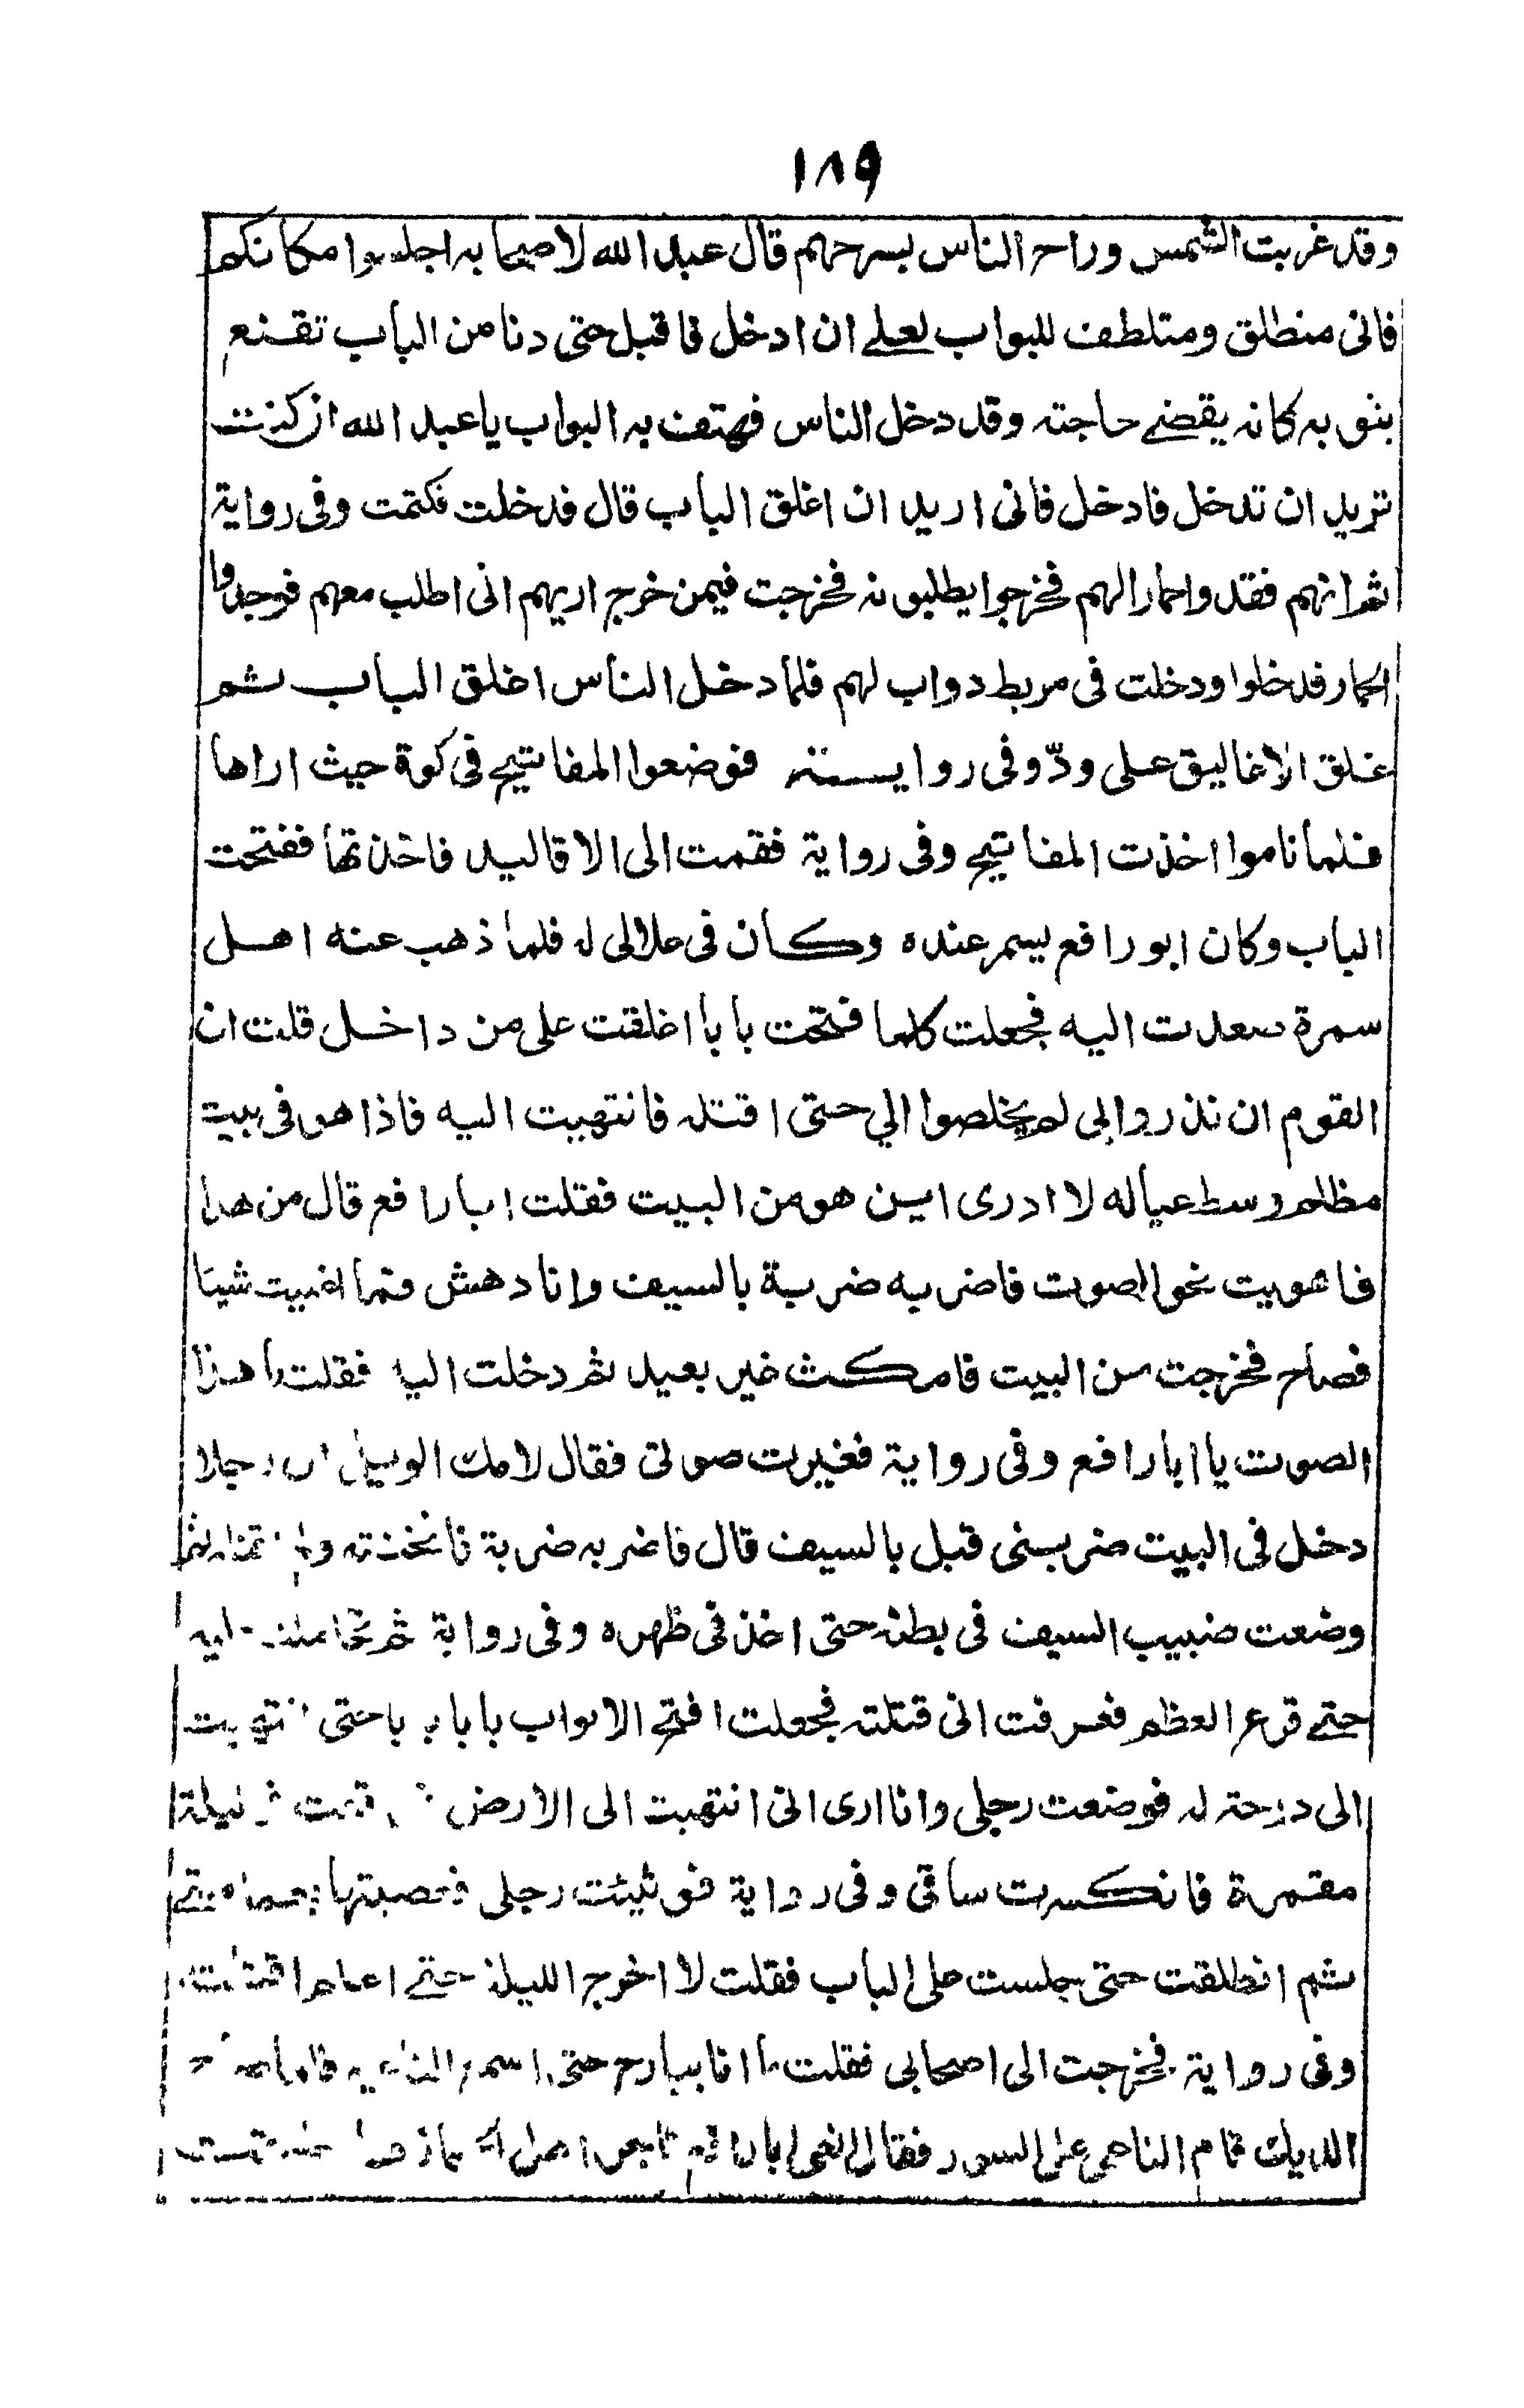 ١٨٩
وقد غربت الشمس وراح الناس بسرحهم قال عبد الله لاصحابه اجلسوا مكانكم
فانى منطلق ومتلطف للبواب لعلے ان ادخل فاقبل حتى دنا من الباب تقنع
بثوبه كانه يقضے حاجته وقد دخل الناس فهتف به البواب يا عبد الله ان كنت
تريد ان تدخل فادخل فانى اريد ان اغلق الباب قال فدخلت فكتمت وفى رواية
ثم انهم فقدوا حمارا لهم فخرجوا يطلبونه فخرجت فيمن خرج اريهم انى اطلب معهم فوجدوا
الحمار فدخلوا ودخلت فى مربط دواب لهم فلما دخل الناس اغلق الباب ثم
غلق الاغاليق على ودّ وفى رواية فوضعوا المفاتيح فى كوة حيث اراها
فلما ناموا اخذت المفاتيح وفى رواية فقمت الى الاقاليد فاخذتها ففتحت
الباب وكان ابو رافع يسمر عنده وكان فى علالى له فلما ذهب عنه اهل
سمرة صعدت اليه فجعلت كلما فتحت بابا اغلقت على من داخل قلت ان
القوم ان نذروا بى لم يخلصوا الي حتى اقتله فانتهيت اليه فاذا هو فى بيت
مظلم وسط عياله لا ادرى اين هو من البيت فقلت ابا رافع قال من هذا
فاهويت نحو الصوت فاضربه ضربة بالسيف وانا دهش فما اغنيت شيئا
فصاح فخرجت من البيت فامكث غير بعيد ثم دخلت اليه فقلت ما هذا
الصوت يا ابا رافع وفى رواية فغيرت صوتى فقال لامك الويل ان رجلا
دخل فى البيت ضربنى قبل بالسيف قال فاضربه ضربة فاثخنته ولم اقتله ثم
وضعت ضبيب السيف فى بطنه حتى اخذ فى ظهره وفى رواية ثم تحاملت عليه
حتے قرع العظم فعرفت انى قتلته فجعلت افتح الابواب بابا بابا حتى انتهيت
الى درجة له فوضعت رجلى وانا ارى انى انتهيت الى الارض فوقعت فى ليلة
مقمرة فانكسرت ساقى وفى رواية فوثيئت رجلى فعصبتها بعمامتے
ثم انطلقت حتى جلست على الباب فقلت لا اخرج الليلة حتے اعلم اقتلته
وفى رواية فخرجت الى اصحابى فقلت ما انا ببارح حتى اسمع الناعية فلما صاح
الديك قام الناعى على السور فقال انعى ابا رافع تاجر اهل